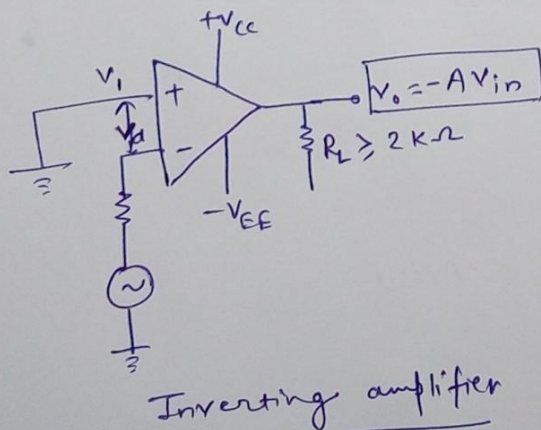 +Vcc
V₁
+
Vd
-
-VEE
V₀ = -A Vin
RL ≥ 2 KΩ
~
Inverting amplifier